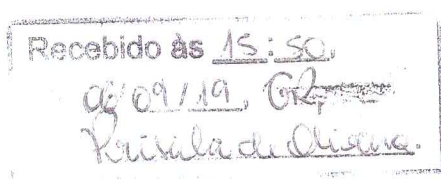 Recebido às 15:50,
09/19,
Priscila de Oliveira.